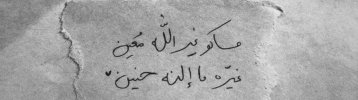 مساكو غير الله معين
غيره ما إلنه حنين